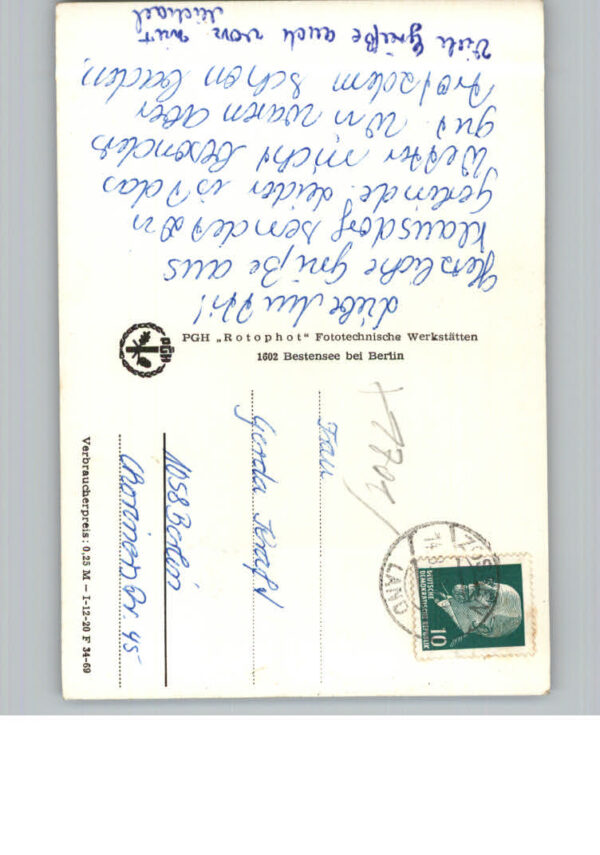 Liebe Mutti!
Herzliche Grüße aus
Klausdorf sendet Dir
Gerlinde. Leider ist das
Wetter nicht besonders
gut. Wir waren aber
trotzdem schon baden.
Viele Grüße auch von
Michael
PGH „Rotophot“ Fototechnische Werkstätten
1602 Bestensee bei Berlin
PGH
Frau
Gerda Kraft
1058 Berlin
Choriner Str. 45
Verbraucherpreis: 0,25 M — I-12-20 F 34-69
LAND
DEUTSCHE
DEMOKRATISCHE REPUBLIK
10